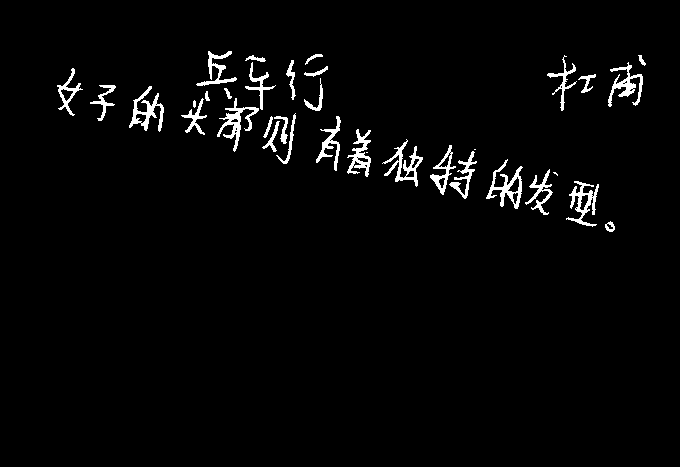 兵车行 杜甫
女子的头部则有着独特的发型。